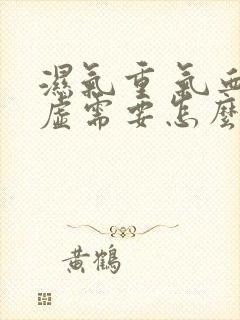 濕氣重氣血
虛需要怎麼
黃鶴